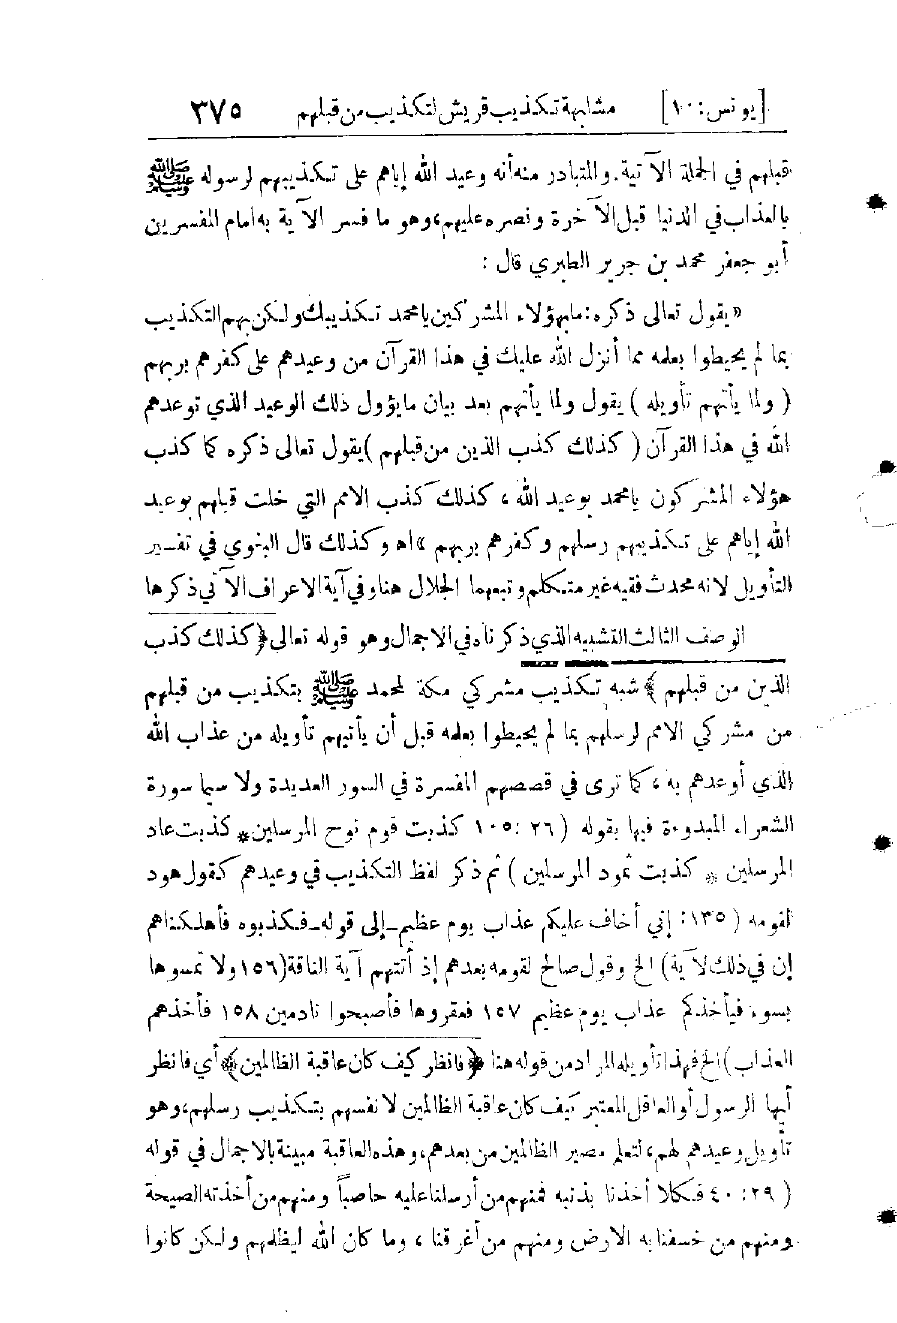 [يونس: ١٠] مشابهة تكذيب قريش لتكذيب من قبلهم ٣٧٥
قبلهم في الجملة الآتية. والمتبادر منه أنه وعيد الله إياهم على تكذيبهم لرسوله ﷺ
بالعذاب في الدنيا قبل الآخرة ونصره عليهم، وهو ما فسر الآية به امام المفسرين
أبو جعفر محمد بن جرير الطبري قال :
« يقول تعالى ذكره: مابهؤلاء المشركين يا محمد تكذيبك ولكن بهم التكذيب
بما لم يحيطوا بعلمه مما أنزل الله عليك في هذا القرآن من وعيدهم على كفرهم بربهم
( ولما يأتهم تأويله ) يقول ولما يأتهم بعد بيان مايؤول ذلك الوعيد الذي توعدهم
الله في هذا القرآن ( كذلك كذب الذين من قبلهم ) يقول تعالى ذكره كما كذب
هؤلاء المشركون يامحمد بوعيد الله ، كذلك كذب الامم التي خلت قبلهم بوعيد
الله إياهم على تكذيبهم رسلهم وكفرهم بربهم » اهـ وكذلك قال البغوي في تفسير
التأويل لانه محدث فقيه غير متكلم وتبعهما الجلال هنا وفي آية الاعراف الآتي ذكرها
الوصف الثالث التشبيه الذي ذكرناه في الاجمال وهو قوله تعالى ﴿ كذلك كذب
الذين من قبلهم ﴾ شبه تكذيب مشركي مكة لمحمد ﷺ بتكذيب من قبلهم
من مشركي الامم لرسلهم بما لم يحيطوا بعلمه قبل أن يأتيهم تأويله من عذاب الله
الذي أوعدهم به ، كما ترى في قصصهم المفسرة في السور العديدة ولا سيما سورة
الشعراء المبدوءة فيها بقوله ( ٢٦ :١٠٥ كذبت قوم نوح المرسلين * كذبت عاد
المرسلين * كذبت ثمود المرسلين ) ثم ذكر لفظ التكذيب في وعيدهم كقول هود
لقومه ( ١٣٥: إني أخاف عليكم عذاب يوم عظيم ـ إلى قوله ـ فكذبوه فأهلكناهم
إن في ذلك لآية ) الخ وقول صالح لقومه بعدهم إذ أتتهم آية الناقة (١٥٦ ولا تمسوها
بسوء فيأخذكم عذاب يوم عظيم ١٥٧ فعقروها فأصبحوا نادمين ١٥٨ فأخذهم
العذاب ) الخ فهذا تأويله المراد من قوله هنا ﴿ فانظر كيف كان عاقبة الظالمين ﴾ أي فانظر
أيها الرسول أو العاقل المعتبر كيف كان عاقبة الظالمين لانفسهم بتكذيب رسلهم، وهو
تأويل وعيدهم لهم، لتعلم مصير الظالمين من بعدهم، وهذه العاقبة مبينة بالاجمال في قوله
( ٢٩ :٤٠ فكلا أخذنا بذنبه فمنهم من أرسلنا عليه حاصباً ومنهم من أخذته الصيحة
ومنهم من خسفنا به الارض ومنهم من أغرقنا ، وما كان الله ليظلمهم ولكن كانوا